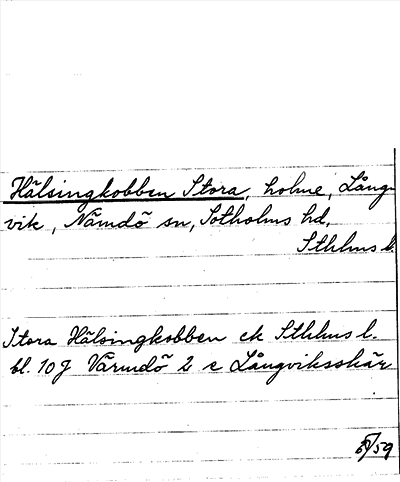 Hälsingkobben Stora, holme, Lång-
vik, Nämdö sn, Sotholms hd,
Sthlms l.
Stora Hälsingkobben ek Sthlms l.
bl. 10 J Värmdö 2 c Långviksskär
/59